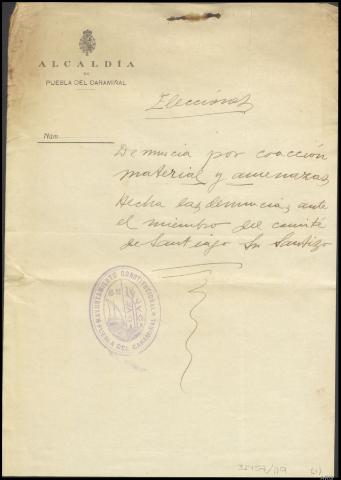 ALCALDÍA
DE
PUEBLA DEL CARAMIÑAL
Elecciones
Núm.
Denuncia por coacción
material y amenazas
Hecha las denuncias ante
el miembro del comité
de Santiago Sr
AYUNTAMIENTO CONSTITUCIONAL
PUEBLA DEL CARAMIÑAL
(1)